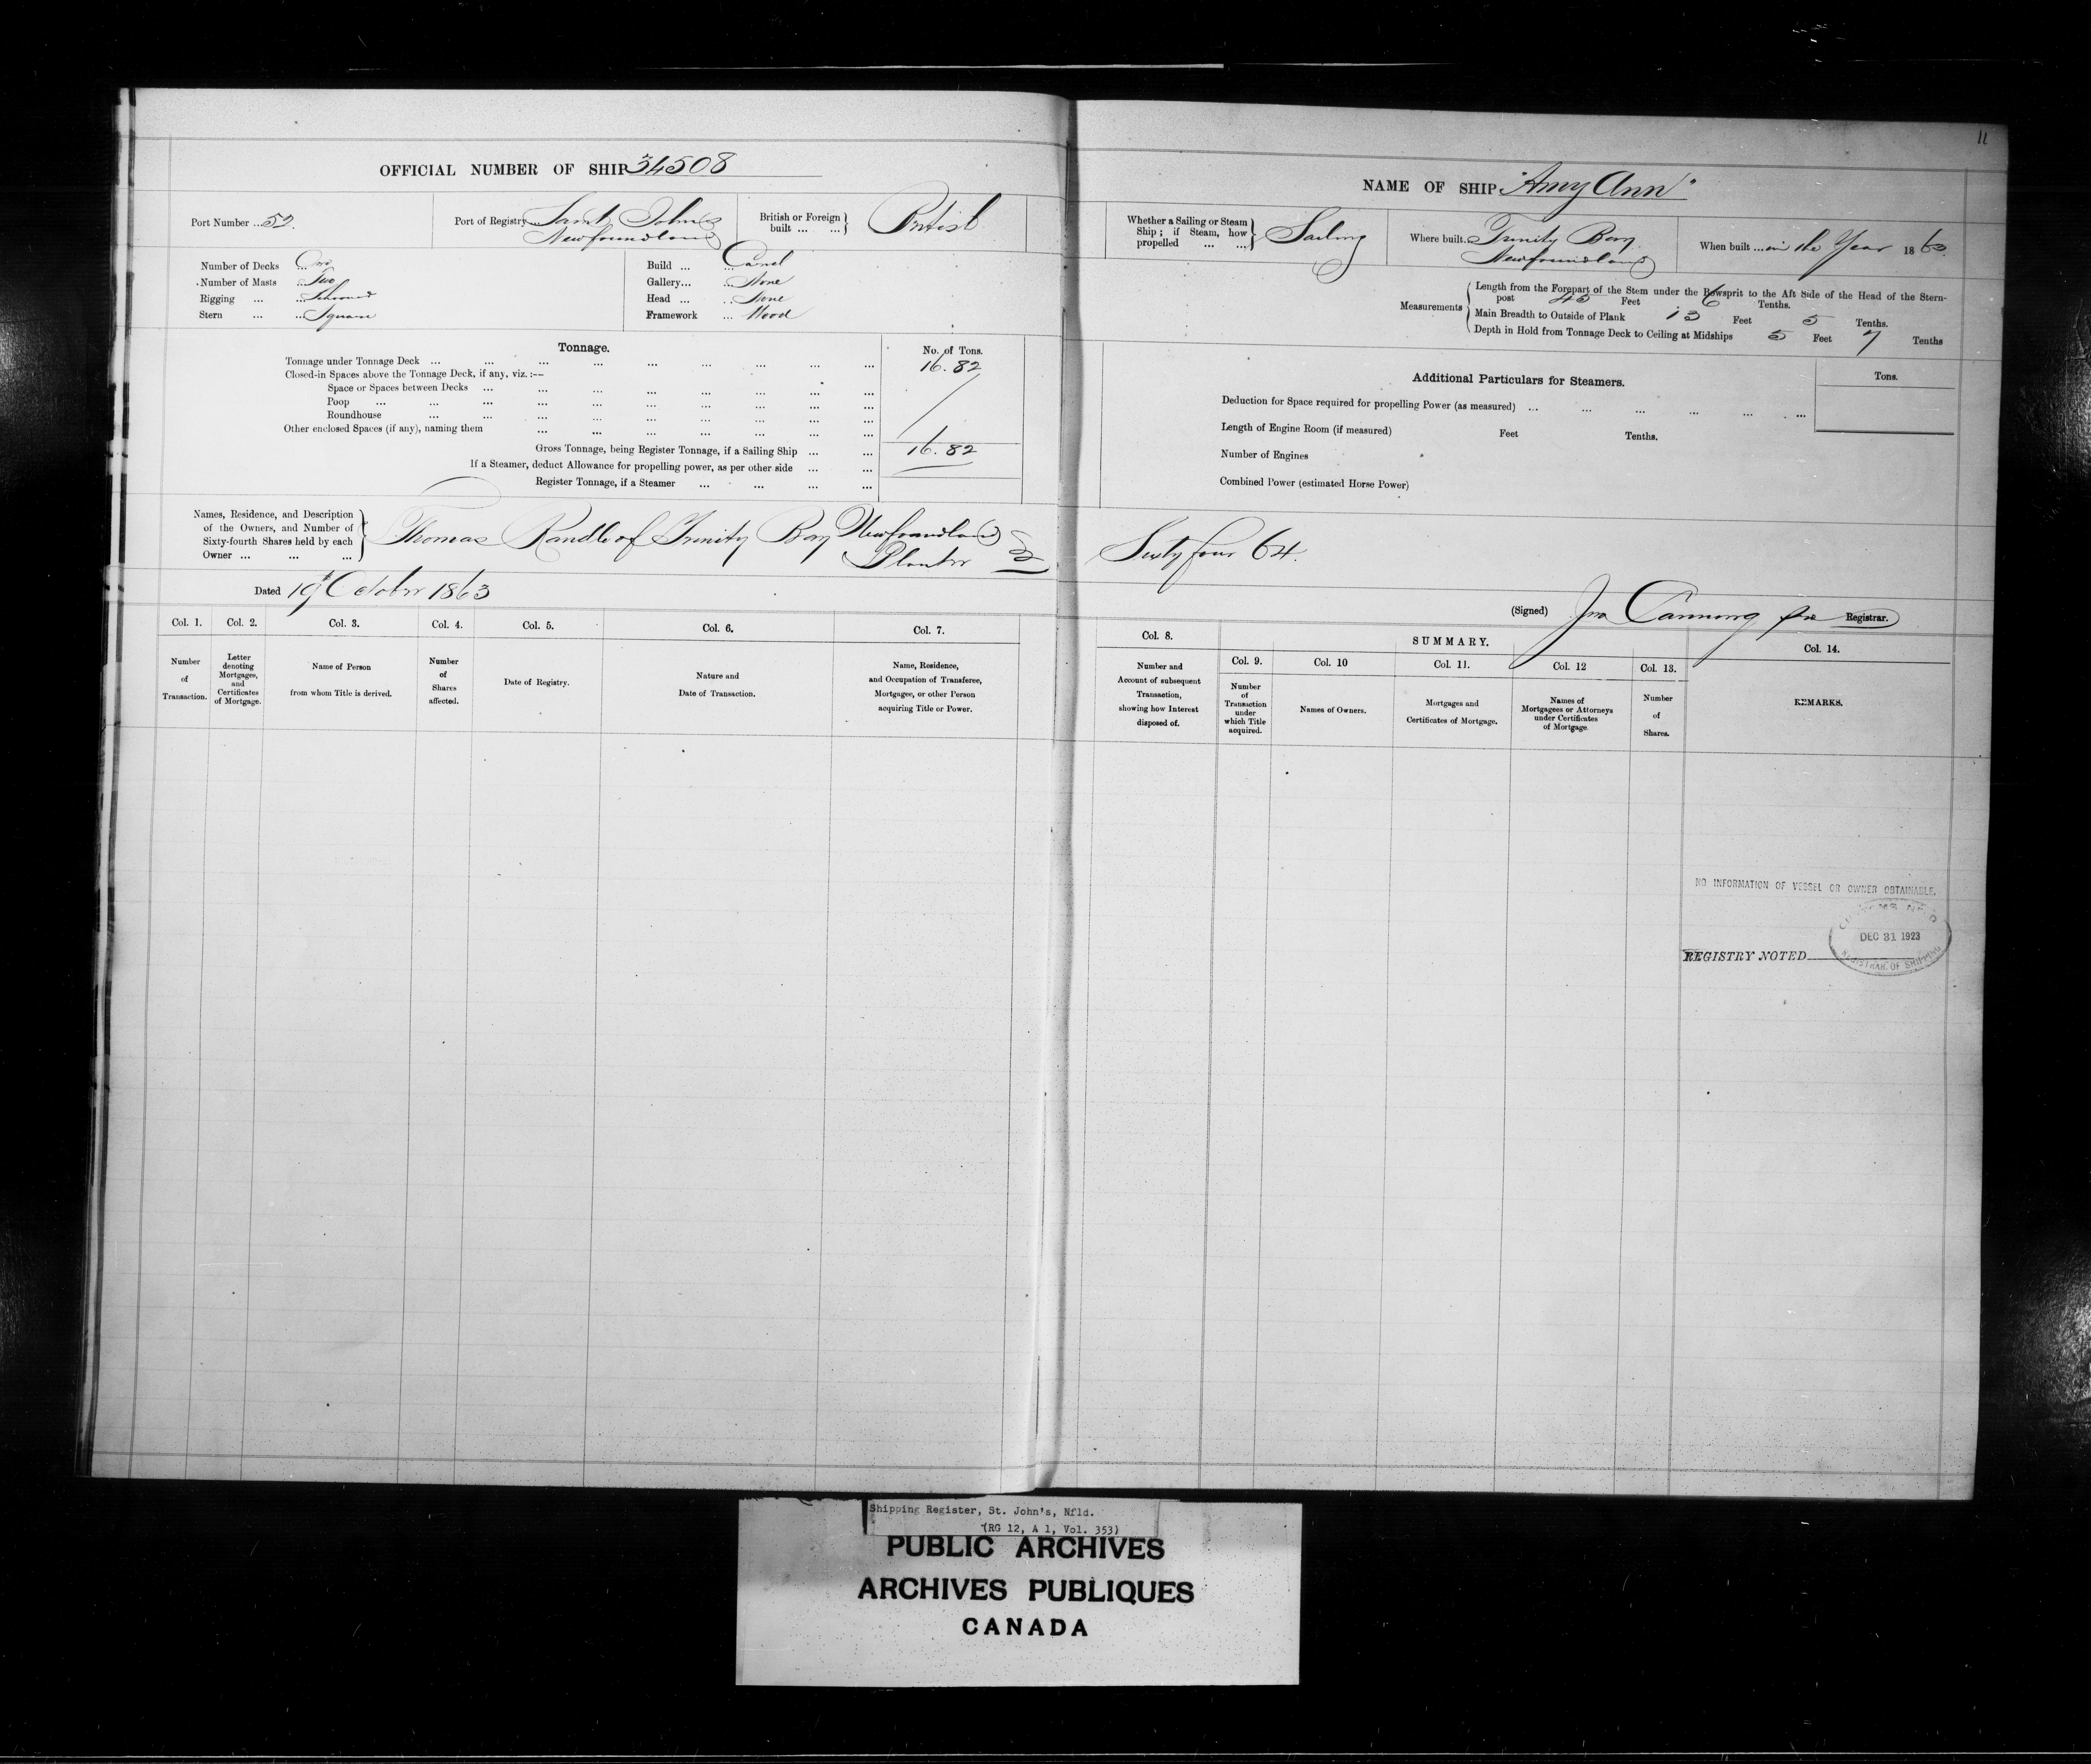 11
OFFICIAL NUMBER OF SHIP 34508
Port Number ... 52.
Port of Registry ... Saint Johns
Newfoundland
British or Foreign built ... ... } British
Number of Decks ... One
Number of Masts ... Two
Rigging ... ... Schooner
Stern ... ... Square
Build ... ... Carvel
Gallery... ... None
Head ... ... None
Framework ... Wood
Tonnage.
No. of Tons.
Tonnage under Tonnage Deck ... ... ... ... ... ... ... ... ... 16.82
Closed-in Spaces above the Tonnage Deck, if any, viz. :—
Space or Spaces between Decks ... ... ... ... ... ... ... ...
Poop ... ... ... ... ... ... ... ... ... ...
Roundhouse ... ... ... ... ... ... ... ... ...
Other enclosed Spaces (if any), naming them ... ... ... ... ... ... ...
Gross Tonnage, being Register Tonnage, if a Sailing Ship ... ... 16.82
If a Steamer, deduct Allowance for propelling power, as per other side ... ...
Register Tonnage, if a Steamer ... ... ... ...
Names, Residence, and Description
of the Owners, and Number of
Sixty-fourth Shares held by each
Owner ... ... ...
Thomas Randle of Trinity Bay Newfoundland
Planter
Dated 19th October 1863
Col. 1. Col. 2. Col. 3. Col. 4. Col. 5. Col. 6. Col. 7.
Number of Transaction.
Letter denoting Mortgages, and Certificates of Mortgage.
Name of Person from whom Title is derived.
Number of Shares affected.
Date of Registry.
Nature and Date of Transaction.
Name, Residence, and Occupation of Transferee, Mortgagee, or other Person acquiring Title or Power.
NAME OF SHIP "Amy Ann"
Whether a Sailing or Steam Ship; if Steam, how propelled ... ... } Sailing
Where built. Trinity Bay
Newfoundland
When built ... in the Year 1860
Measurements
Length from the Forepart of the Stem under the Bowsprit to the Aft Side of the Head of the Stern-
post 45 Feet 6 Tenths.
Main Breadth to Outside of Plank 13 Feet 5 Tenths.
Depth in Hold from Tonnage Deck to Ceiling at Midships 5 Feet 7 Tenths
Additional Particulars for Steamers.
Tons.
Deduction for Space required for propelling Power (as measured) ... ... ... ... ... ...
Length of Engine Room (if measured) Feet Tenths.
Number of Engines
Combined Power (estimated Horse Power)
Sixty four 64.
(Signed) Jno Canning Registrar.
Col. 8.
SUMMARY.
Col. 9. Col. 10 Col. 11. Col. 12 Col. 13. Col. 14.
Number and Account of subsequent Transaction, showing how Interest disposed of.
Number of Transaction under which Title acquired.
Names of Owners.
Mortgages and Certificates of Mortgage.
Names of Mortgagees or Attorneys under Certificates of Mortgage.
Number of Shares.
REMARKS.
NO INFORMATION OF VESSEL OR OWNER OBTAINABLE.
DEC 31 1923
REGISTRAR OF SHIPPING
REGISTRY NOTED
Shipping Register, St. John's, Nfld.
(RG 12, A 1, Vol. 353)
PUBLIC ARCHIVES
ARCHIVES PUBLIQUES
CANADA